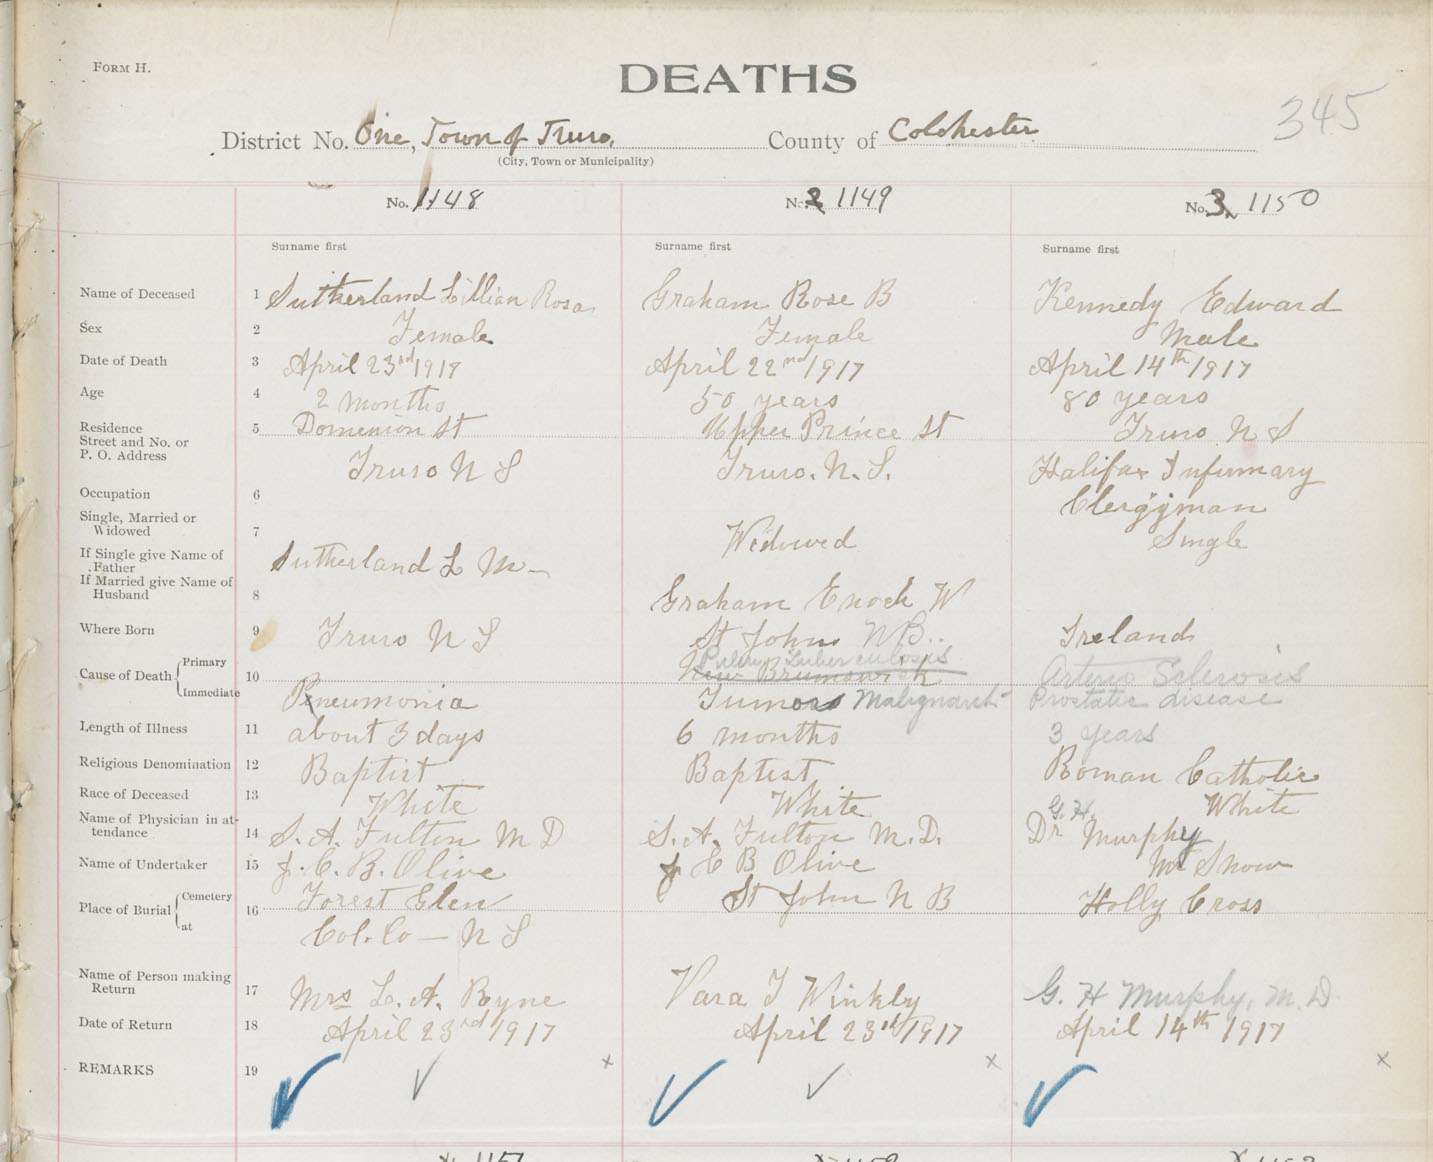 FORM H.
DEATHS
345
District No. One, Town of Truro, County of Colchester
(City, Town or Municipality)
No. 1148
No. 2 1149
No. 3. 1150
Surname first
Surname first
Surname first
Name of Deceased 1 Sutherland Lillian Rosa Graham Rose B Kennedy Edward
Sex 2 Female Female Male
Date of Death 3 April 23rd 1917 April 22nd 1917 April 14th 1917
Age 4 2 months 50 years 80 years
Residence 5 Domenion St Upper Prince St Truro N S
Street and No. or
P. O. Address Truro N S Truro. N. S. Halifax Infirmary
Occupation 6 Clergyman
Single, Married or
Widowed 7 Widowed Single
If Single give Name of
Father Sutherland L M-
If Married give Name of
Husband 8 Graham Enoch W
Where Born 9 Truro N S St John N B.. Ireland
New Brunswick
Cause of Death Primary 10 Pulm Tuberculosis Arterio Sclerosis
Immediate Pneumonia Tumors Malignant Prostatic disease
Length of Illness 11 about 3 days 6 months 3 years
Religious Denomination 12 Baptist Baptist Roman Catholic
Race of Deceased 13 White White White
Name of Physician in at-
tendance 14 S. A. Fulton M D S. A. Fulton M. D. Dr G. H. Murphy
Name of Undertaker 15 J. C. B. Olive J C B Olive Mr Snow
Place of Burial Cemetery 16 Forest Glen St John N B Holly Cross
at Col. Co — N S
Name of Person making
Return 17 Mrs L. A. Ryne Vara I Winkly G. H Murphy, M. D.
Date of Return 18 April 23rd 1917 April 23rd 1917 April 14th 1917
REMARKS 19
1151